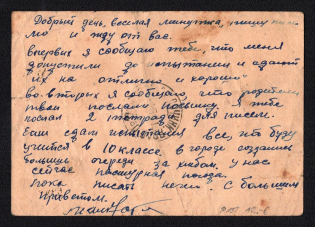 Добрый день, веселая минутка, пишу пись
мо и жду от вас.
Впервых я сообщаю тебе, что меня
допустили до испытании и сдают
"их" на отлично и хорошо"
Во вторых я сообщаю, что родители
твои послали посылку. Я тебе
послал 2 тетради для писем.
Если сдам испытания все, то буду
учится в 10 классе. В городе создались
большие очереди за хлебом. У нас
сейчас пасмурная погода.
Пока писать нечего. С большим
приветом.